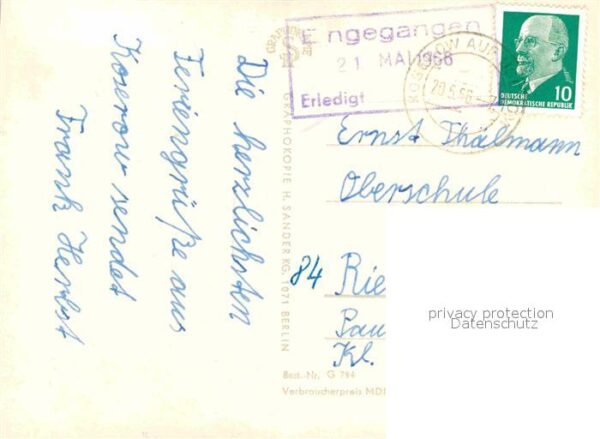 Die herzlichsten
Feriengrüße aus
Koserow sendet
Frank Herbst
GRAPHOKOPIE H. SANDER KG. 1071 BERLIN
Best.-Nr. G 794
Verbraucherpreis MD
E ngegangen
21 MAI 1966
Erledigt
KOSEROW AUF
20.5.66
10
DEUTSCHE
DEMOKRATISCHE REPUBLIK
Ernst Thälmann
Oberschule
84 Rie
Pau
Kl.
privacy protection
Datenschutz